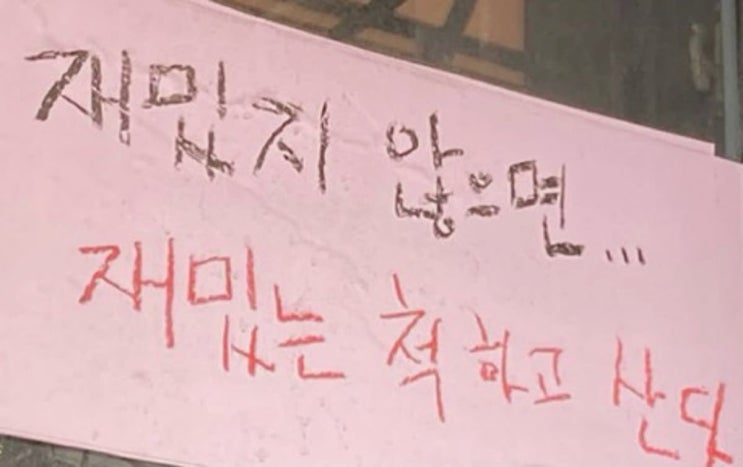 재밌지 않으면...
재밌는 척 하고 산다